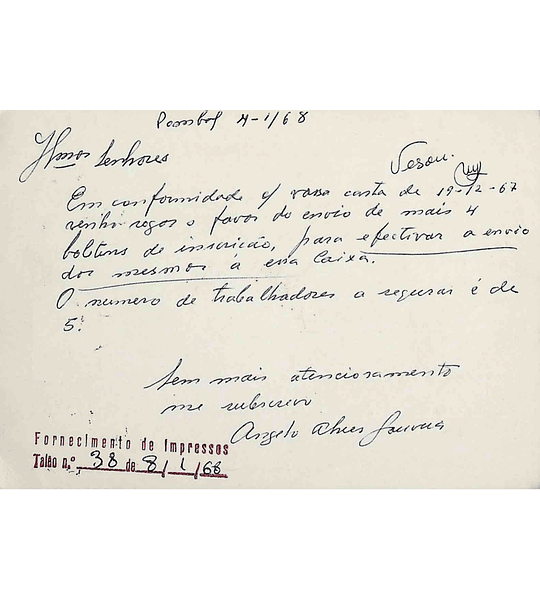 Pombal 4-1/68
Ilmos Senhores
Em conformidade c/ vossa carta de 19-12-67
venho rogar o favor do envio de mais 4
boltins de inscrição, para efectivar a envio
dos mesmos á essa Caixa.
O numero de trabalhadores a segurar é de
5.
Sem mais atenciosamente
me subscrevo
Angelo Alves
Fornecimento de Impressos
Talão n.º 38 de 8/1/68